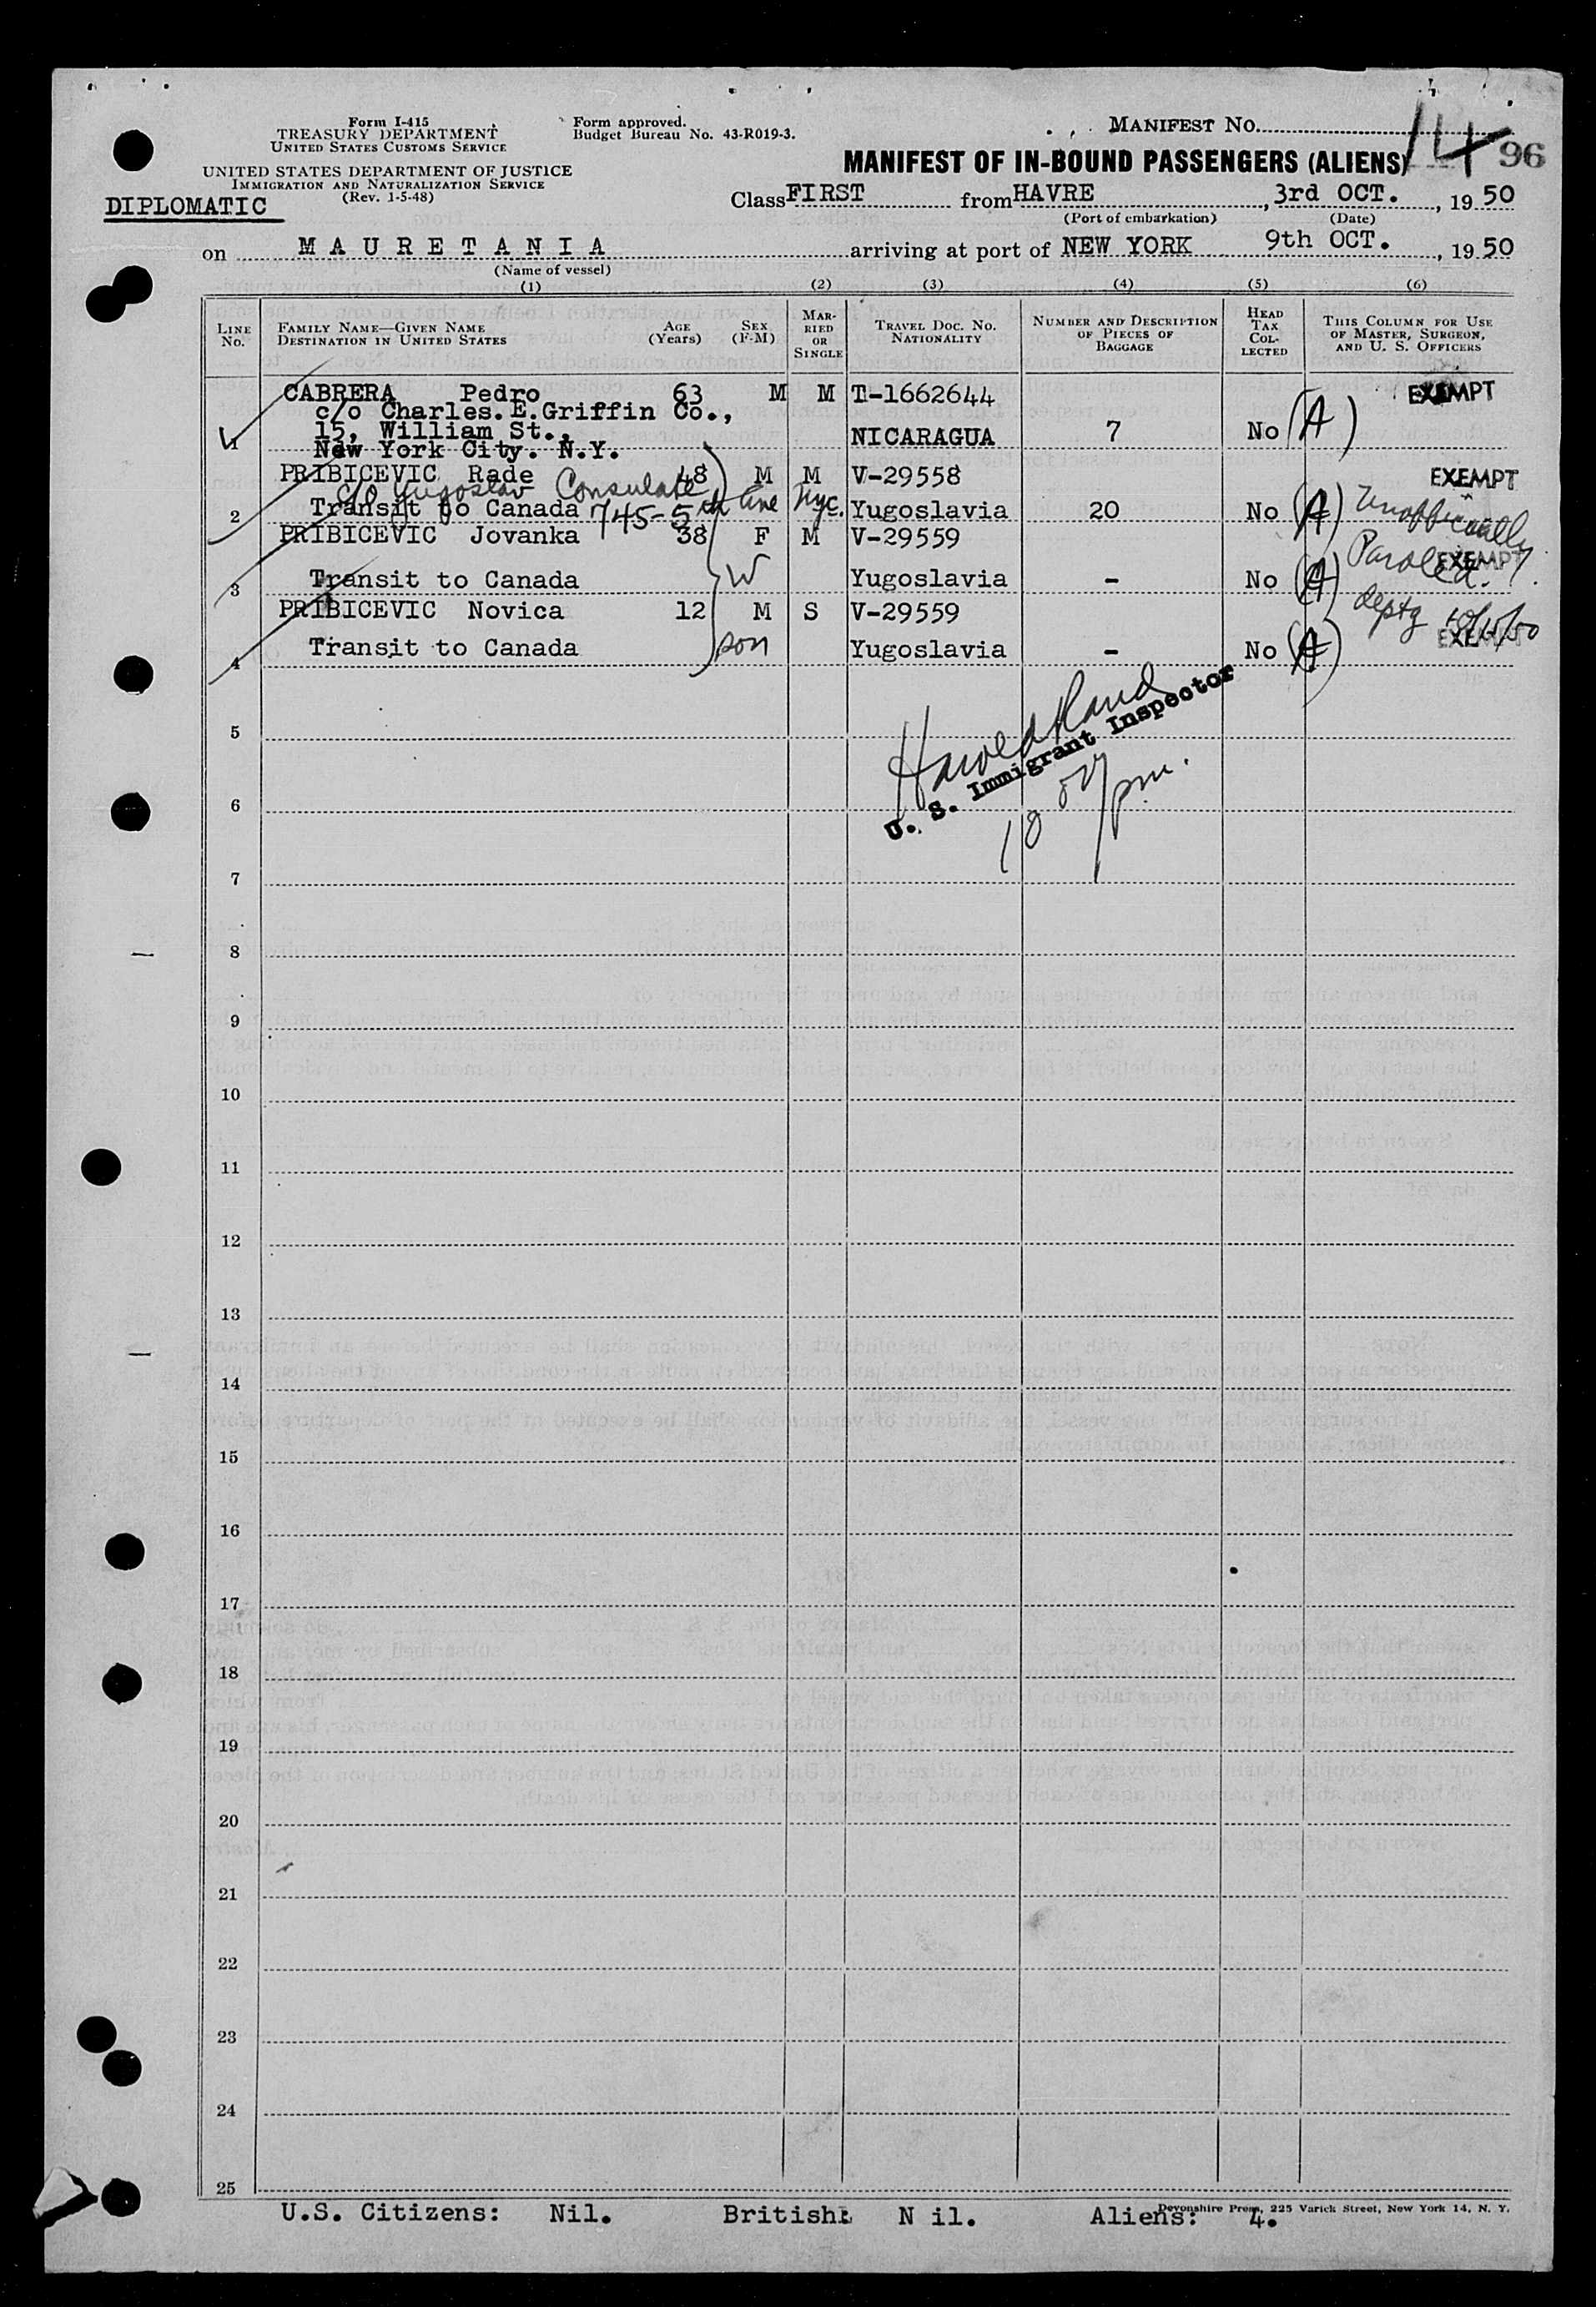 Form I-415
TREASURY DEPARTMENT
UNITED STATES CUSTOMS SERVICE
Form approved.
Budget Bureau No. 43-R019-3.
MANIFEST NO. 14 96
UNITED STATES DEPARTMENT OF JUSTICE
IMMIGRATION AND NATURALIZATION SERVICE
(Rev. 1-5-48)
MANIFEST OF IN-BOUND PASSENGERS (ALIENS)
DIPLOMATIC
Class FIRST from HAVRE, 3rd OCT., 19 50
(Port of embarkation) (Date)
on MAURETANIA arriving at port of NEW YORK 9th OCT., 19 50
(Name of vessel)
(1) (2) (3) (4) (5) (6)
LINE No. FAMILY NAME—GIVEN NAME DESTINATION IN UNITED STATES AGE (Years) SEX (F-M) MARRIED OR SINGLE TRAVEL DOC. NO. NATIONALITY NUMBER AND DESCRIPTION OF PIECES OF BAGGAGE HEAD TAX COLLECTED THIS COLUMN FOR USE OF MASTER, SURGEON, AND U. S. OFFICERS
CABRERA Pedro 63 M M T-1662644 EXEMPT
c/o Charles.E.Griffin Co.,
15, William St.,
1 New York City. N.Y. NICARAGUA 7 No (A)
PRIBICEVIC Rade 48 M M V-29558 EXEMPT
c/o Yugoslav Consulate
745-5th Ave Nyc.
2 Transit to Canada Yugoslavia 20 No (A) Unofficially
PRIBICEVIC Jovanka 38 F M V-29559
Paroled. EXEMPT
3 Transit to Canada W Yugoslavia - No (A)
PRIBICEVIC Novica 12 M S V-29559
4 Transit to Canada son Yugoslavia - No (A) EXEMPT
Harold
U. S. Immigrant Inspector
pm.
5
6
7
8
9
10
11
12
13
14
15
16
17
18
19
20
21
22
23
24
25
U.S. Citizens: Nil. British: N il. Aliens: 4.
Devonshire Press, 225 Varick Street, New York 14, N. Y.